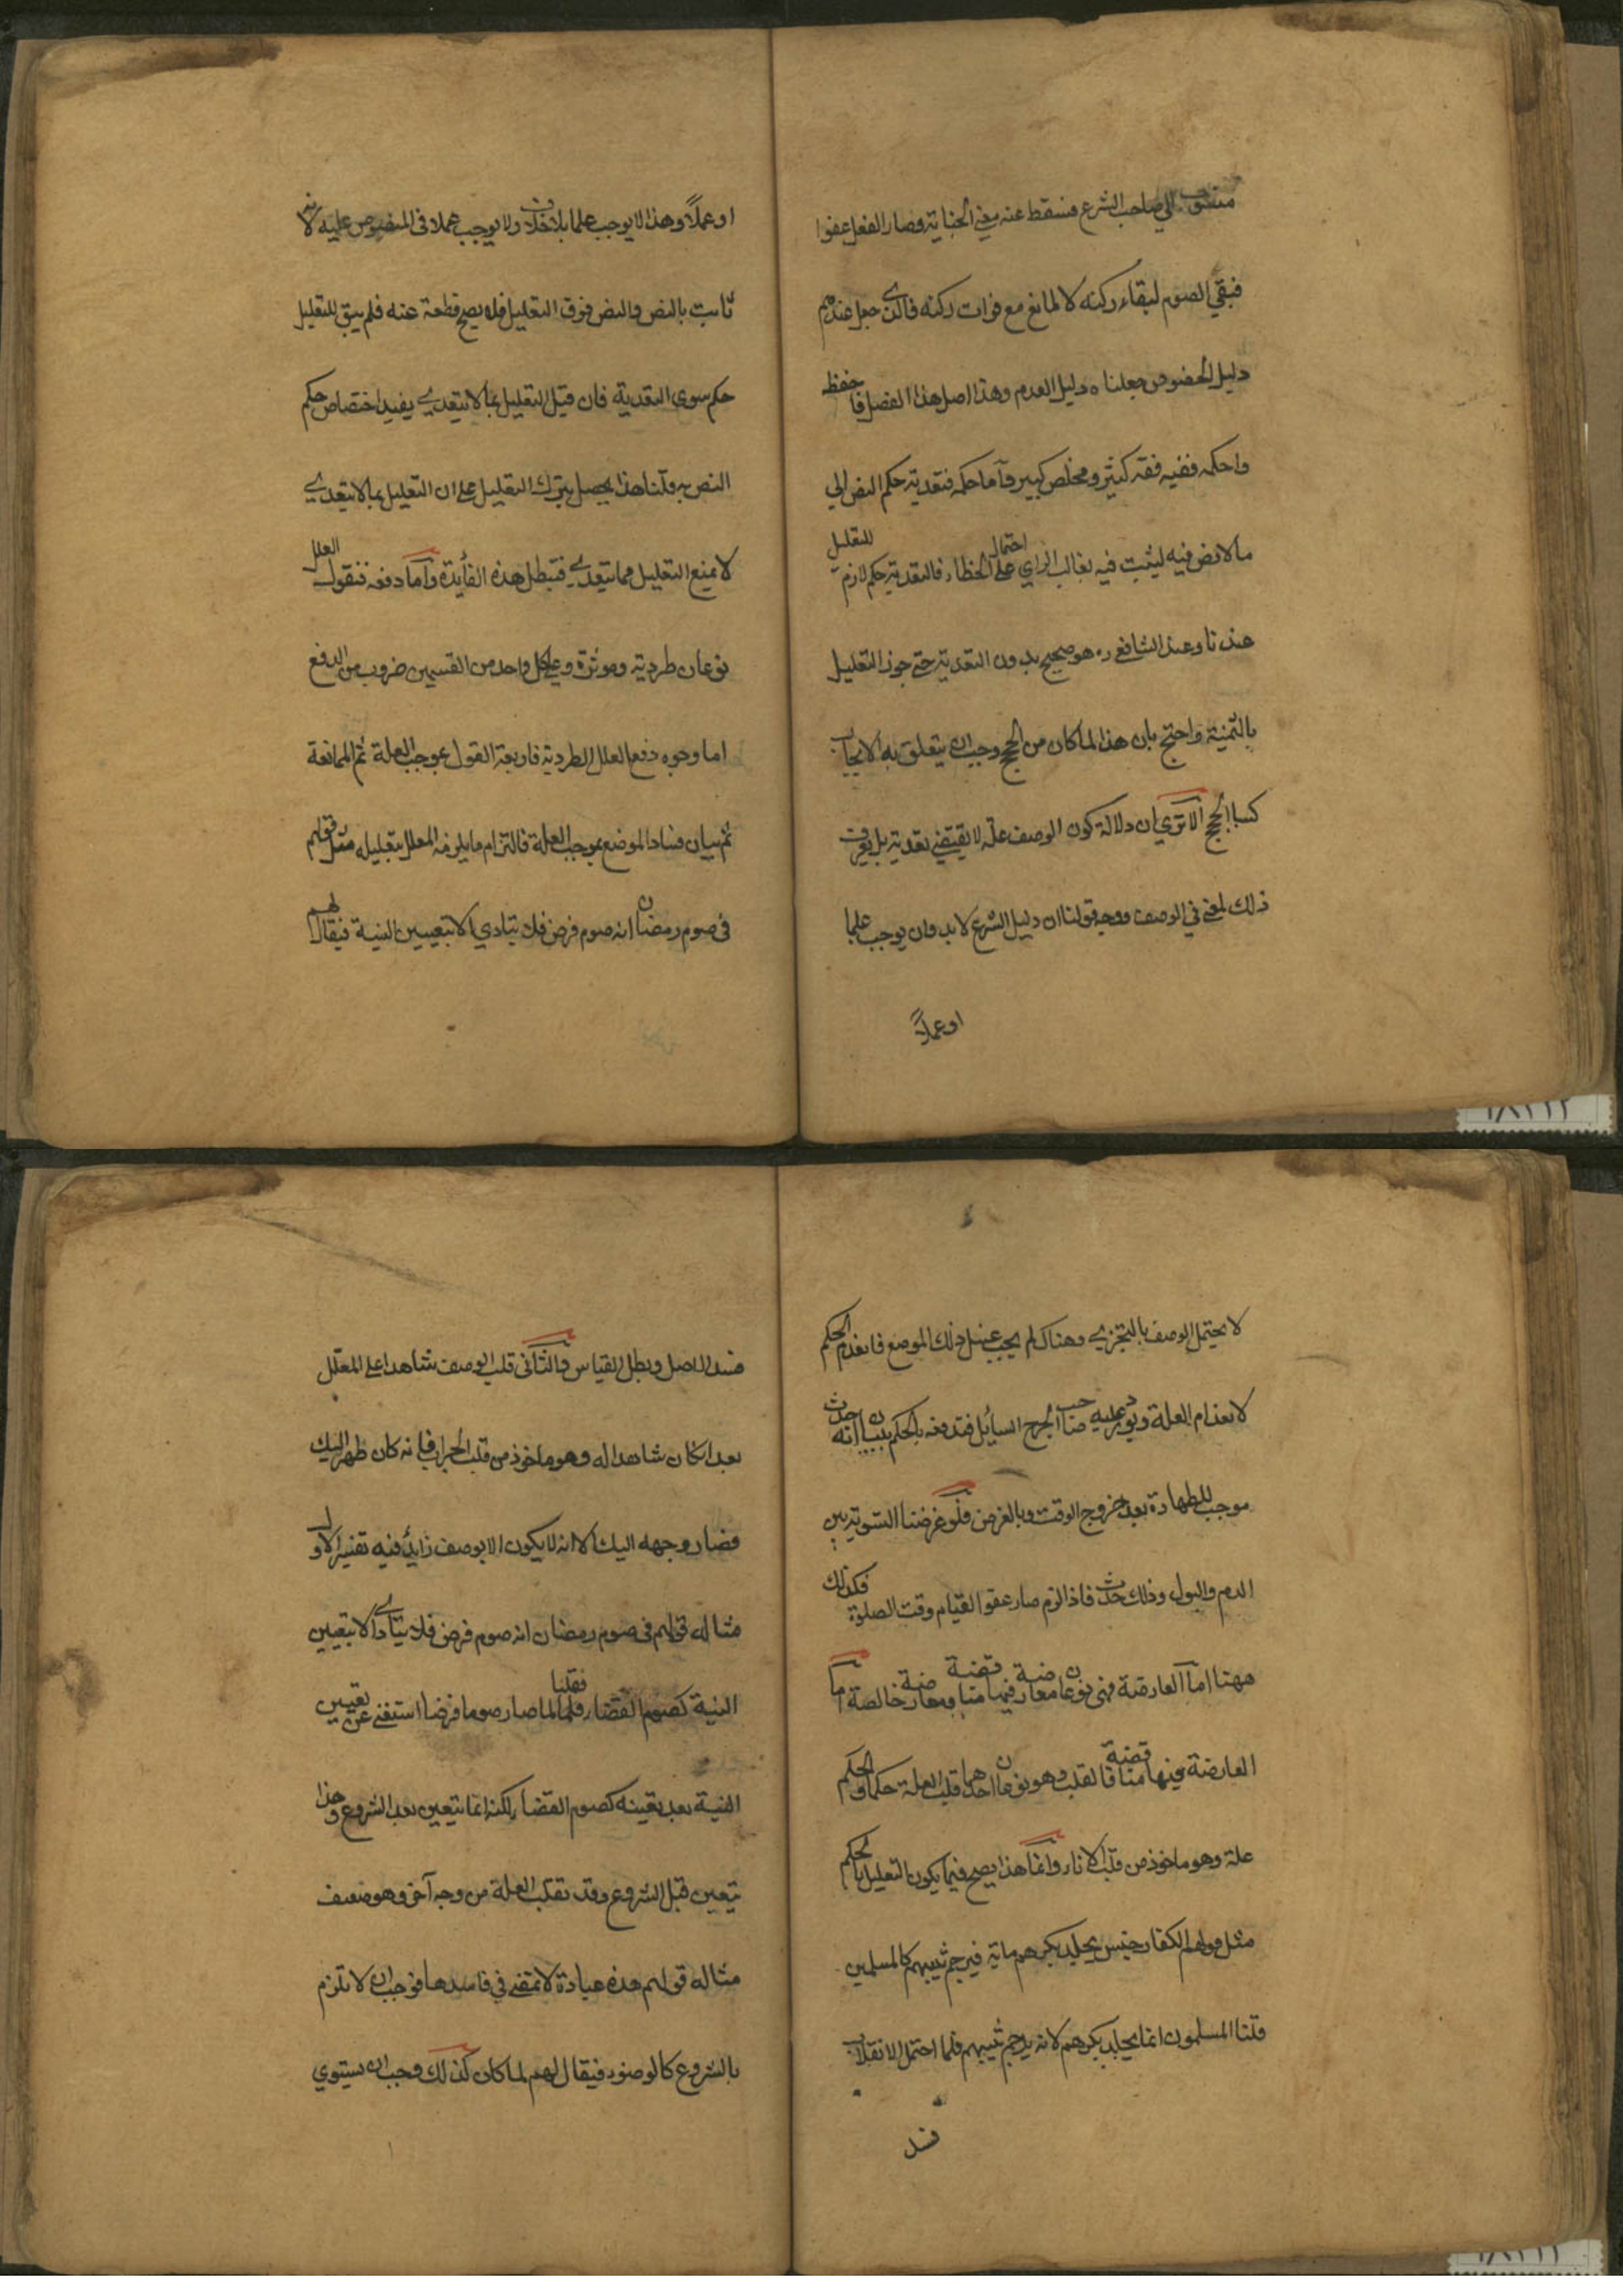 منسوب الي صاحب الشرع فسقط عنه معني الجناية وصار الفعل عفوا
فبقي الصوم لبقاء ركنه لا لمانع مع فوات ركنه فالذي جعل عندهم
دليل الخصوص جعلناه دليل العدم وهذا اصل هذا الفصل فاحفظه
واحكمه ففيه فقه كثير ومخلص كبير وأما حكمه فتعدية حكم النص الي
ما لا نص فيه ليثبت فيه بغالب الراي علي احتمال الخطاء فالتعدية حكم لازم للتعليل
عندنا وعند الشافعي ره هو صحيح بدون التعدية حتي جوز التعليل
بالثمنية واحتج بان هذا لما كان من الحجج وجب ان يتعلق به الايجاب
كسائر الحجج الا تري ان دلالة كون الوصف علة لا يقتضي تعدية بل يعرف
ذلك لمعني في الوصف ووجه قولنا ان دليل الشرع لا بد وان يوجب علما
او عملاً
او عملاً وهذا لا يوجب علما بلا خلاف ولا يوجب عملا في المنصوص عليه لانه
ثابت بالنص والنص فوق التعليل فلا يصح قطعه عنه فلم يبق للتعليل
حكم سوي التعدية فان قيل التعليل بما لا يتعدي يفيد اختصاص حكم
النص به قلنا هذا يحصل بترك التعليل علي ان التعليل بما لا يتعدي
لا يمنع التعليل بما يتعدي فتبطل هذه الفائدة وأما دفعه فنقول العلل
نوعان طردية وموثرة وعلي كل واحد من القسمين ضروب من الدفع
اما وجوه دفع العلل الطردية فاربعة القول بموجب العلة ثم الممانعة
ثم بيان فساد الوضع بموجب العلة فالتزام ما يلزمه المعلل بتعليله مثل قولهم
في صوم رمضان انه صوم فرض فلا يتادي الا بتعيين النية فيقال لهم
لا يحتمل الوصف بالتجزي وهناك لم يجب غسل ذلك الموضع فانعدم الحكم
لانعدام العلة ويورد عليه صاحب الجرح السائل فتدفعه بالحكم ببيان انه حدث
موجب للطهارة بعد خروج الوقت وبالغرض فلو غرضنا التسوية بين
الدم والبول وذلك حدث فاذا لزم صار عفوا لقيام وقت الصلوة فكذلك
ههنا اما المعارضة فهي نوعان معارضة فيها مناقضة ومعارضة خالصة أما
المعارضة فيها مناقضة فالقلب وهو نوعان احدهما قلب العلة حكما والحكم
علة وهو ماخوذ من قلب الاناء وانما هذا يصح فيما يكون التعليل بالحكم
مثل قولهم الكفار جنس يجلد بكرهم ماية فيرجم ثيبهم كالمسلمين
قلنا المسلمون انما يجلد بكرهم لانه يرجم ثيبهم فلما احتمل الانقلاب
فسد
فسد الاصل وبطل القياس والثاني قلب الوصف شاهدا علي المعلّل
بعد ان كان شاهدا له وهو ماخوذ من قلب الجراب فانه كان ظهره اليك
فصار وجهه اليك الا انه لا يكون الا بوصف زائد فيه تفسير الاول
مثاله قولهم في صوم رمضان انه صوم فرض فلا يتادي الا بتعيين
النية كصوم القضاء فقلنا لما صار صوما فرضا استغني عن تعيين
النية بعد تعينه كصوم القضاء لكنه انما يتعين بعد الشروع وهذا
يتعين قبل الشروع وقد تقلب العلة من وجه آخر وهو ضعيف
مثاله قولهم هذه عبادة لا تمضي في فاسدها فوجب ان لا تلزم
بالشروع كالوضوء فيقال لهم لما كان كذلك وجب ان يستوي